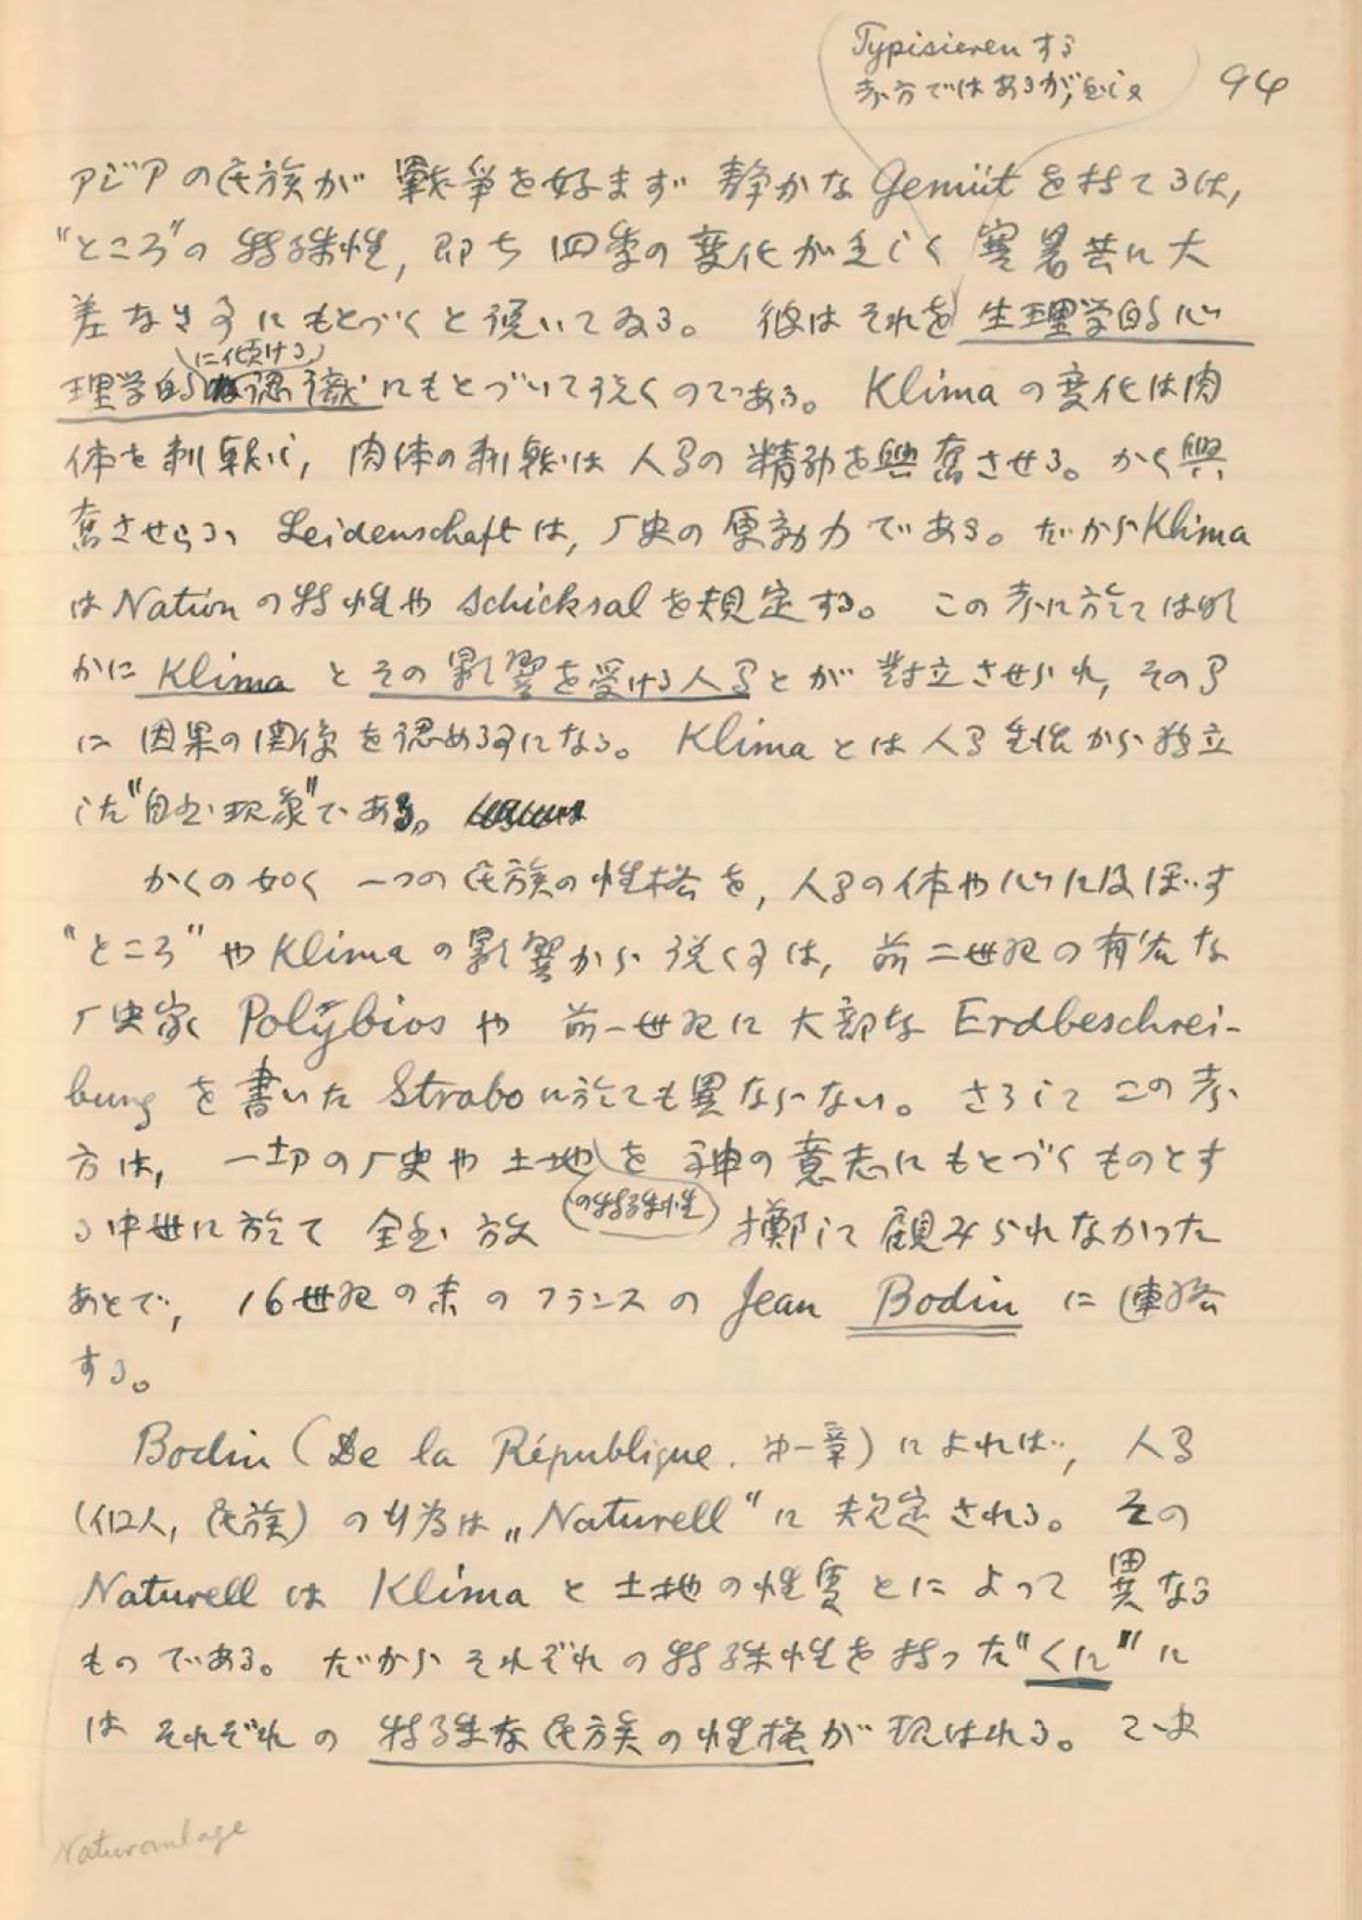 Typisierenする
考方ではあるが,但し又
94
アジアの民族が 戰争を好まず 静かな Gemütを持てるは,
"ところ"の特殊性, 即ち 四季の変化が乏しく 寒暑共に大
差なき事にもとづくと説いてゐる。 彼はそれを 生理学的心
に傾ける
理学的認識にもとづいて説くのである。 Klimaの変化は肉
体を刺戟し, 肉体の刺戟は 人間の 精神を興奮させる。かく興
奮させらるゝ Leidenschaftは, 厂史の 原動力である。だからKlima
はNationの特性や Schicksalを規定する。 この考に於ては明
かに Klima と その影響を受ける人間とが 対立させられ, その間
に 因果の関係を認める事になる。 Klimaとは人間生活から独立
した"自然現象"である。
かくの如く 一つの民族の性格を, 人間の体や心に及ぼす
"ところ"やKlimaの影響から 説く事は, 前二世紀の有名な
厂史家 Polybiosや 前一世紀に 大部な Erdbeschrei-
bungを書いた Straboに於ても異ならない。 さうして この考
方は, 一切の厂史や土地を 神の意志にもとづくものとす
の特殊性
る中世に於て 全然 放擲して顧みられなかった
あとで, 16世紀の末のフランスの Jean Bodin に連絡
する。
Bodin (De la République. 第一章) によれば, 人間
(個人, 民族) の行為は „Naturell"に 規定される。 その
Naturellは Klimaと土地の性質とによって 異なる
ものである。 だからそれぞれの特殊性を持った"くに"に
は それぞれの 特殊な民族の性格が 現はれる。
Naturanlage